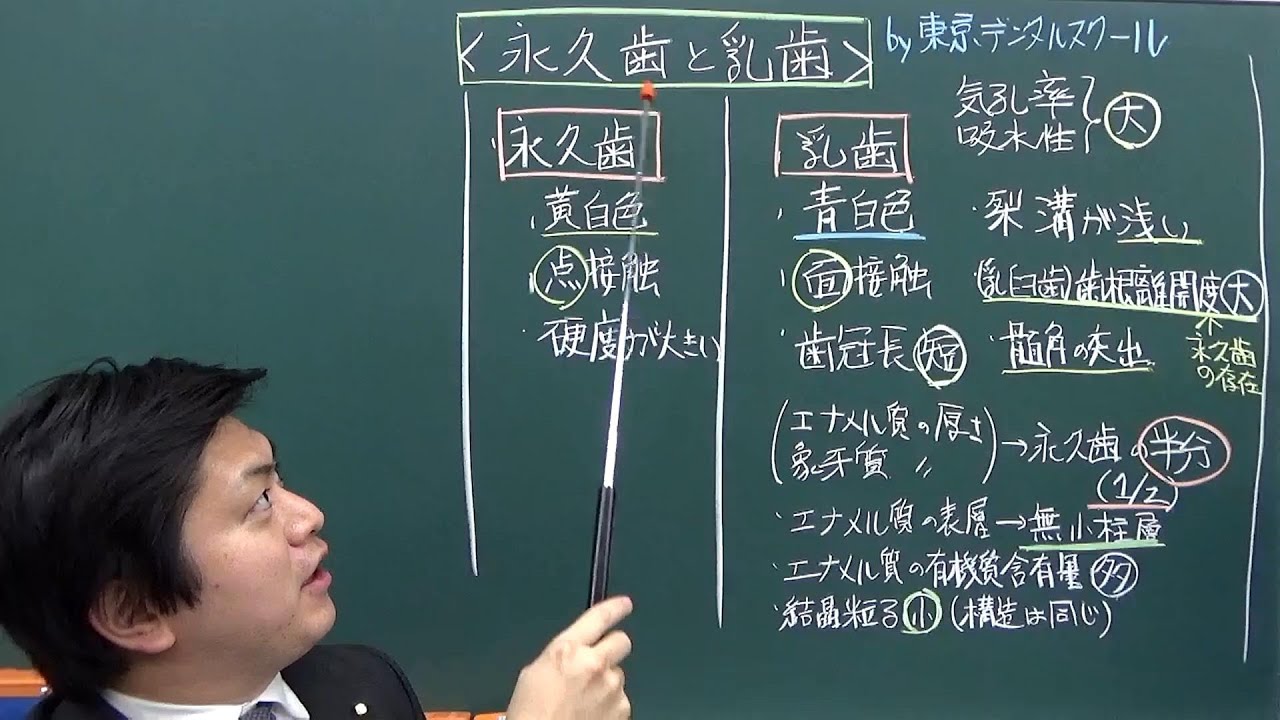 <永久歯と乳歯>
by 東京デンタルスクール
・永久歯
・黄白色
・点接触
・硬度が大きい
乳歯
・青白色
・面接触
・歯冠長 短
気孔率
吸水性 } 大
・裂溝が浅い
(乳臼歯)歯根離開度 大
永久歯
の存在
・髄角の突出
(エナメル質の厚さ
象牙質 〃)→永久歯の半分
(1/2)
・エナメル質の表層→無小柱層
・エナメル質の有機質含有量 多
・結晶粒子 小 (構造は同じ)